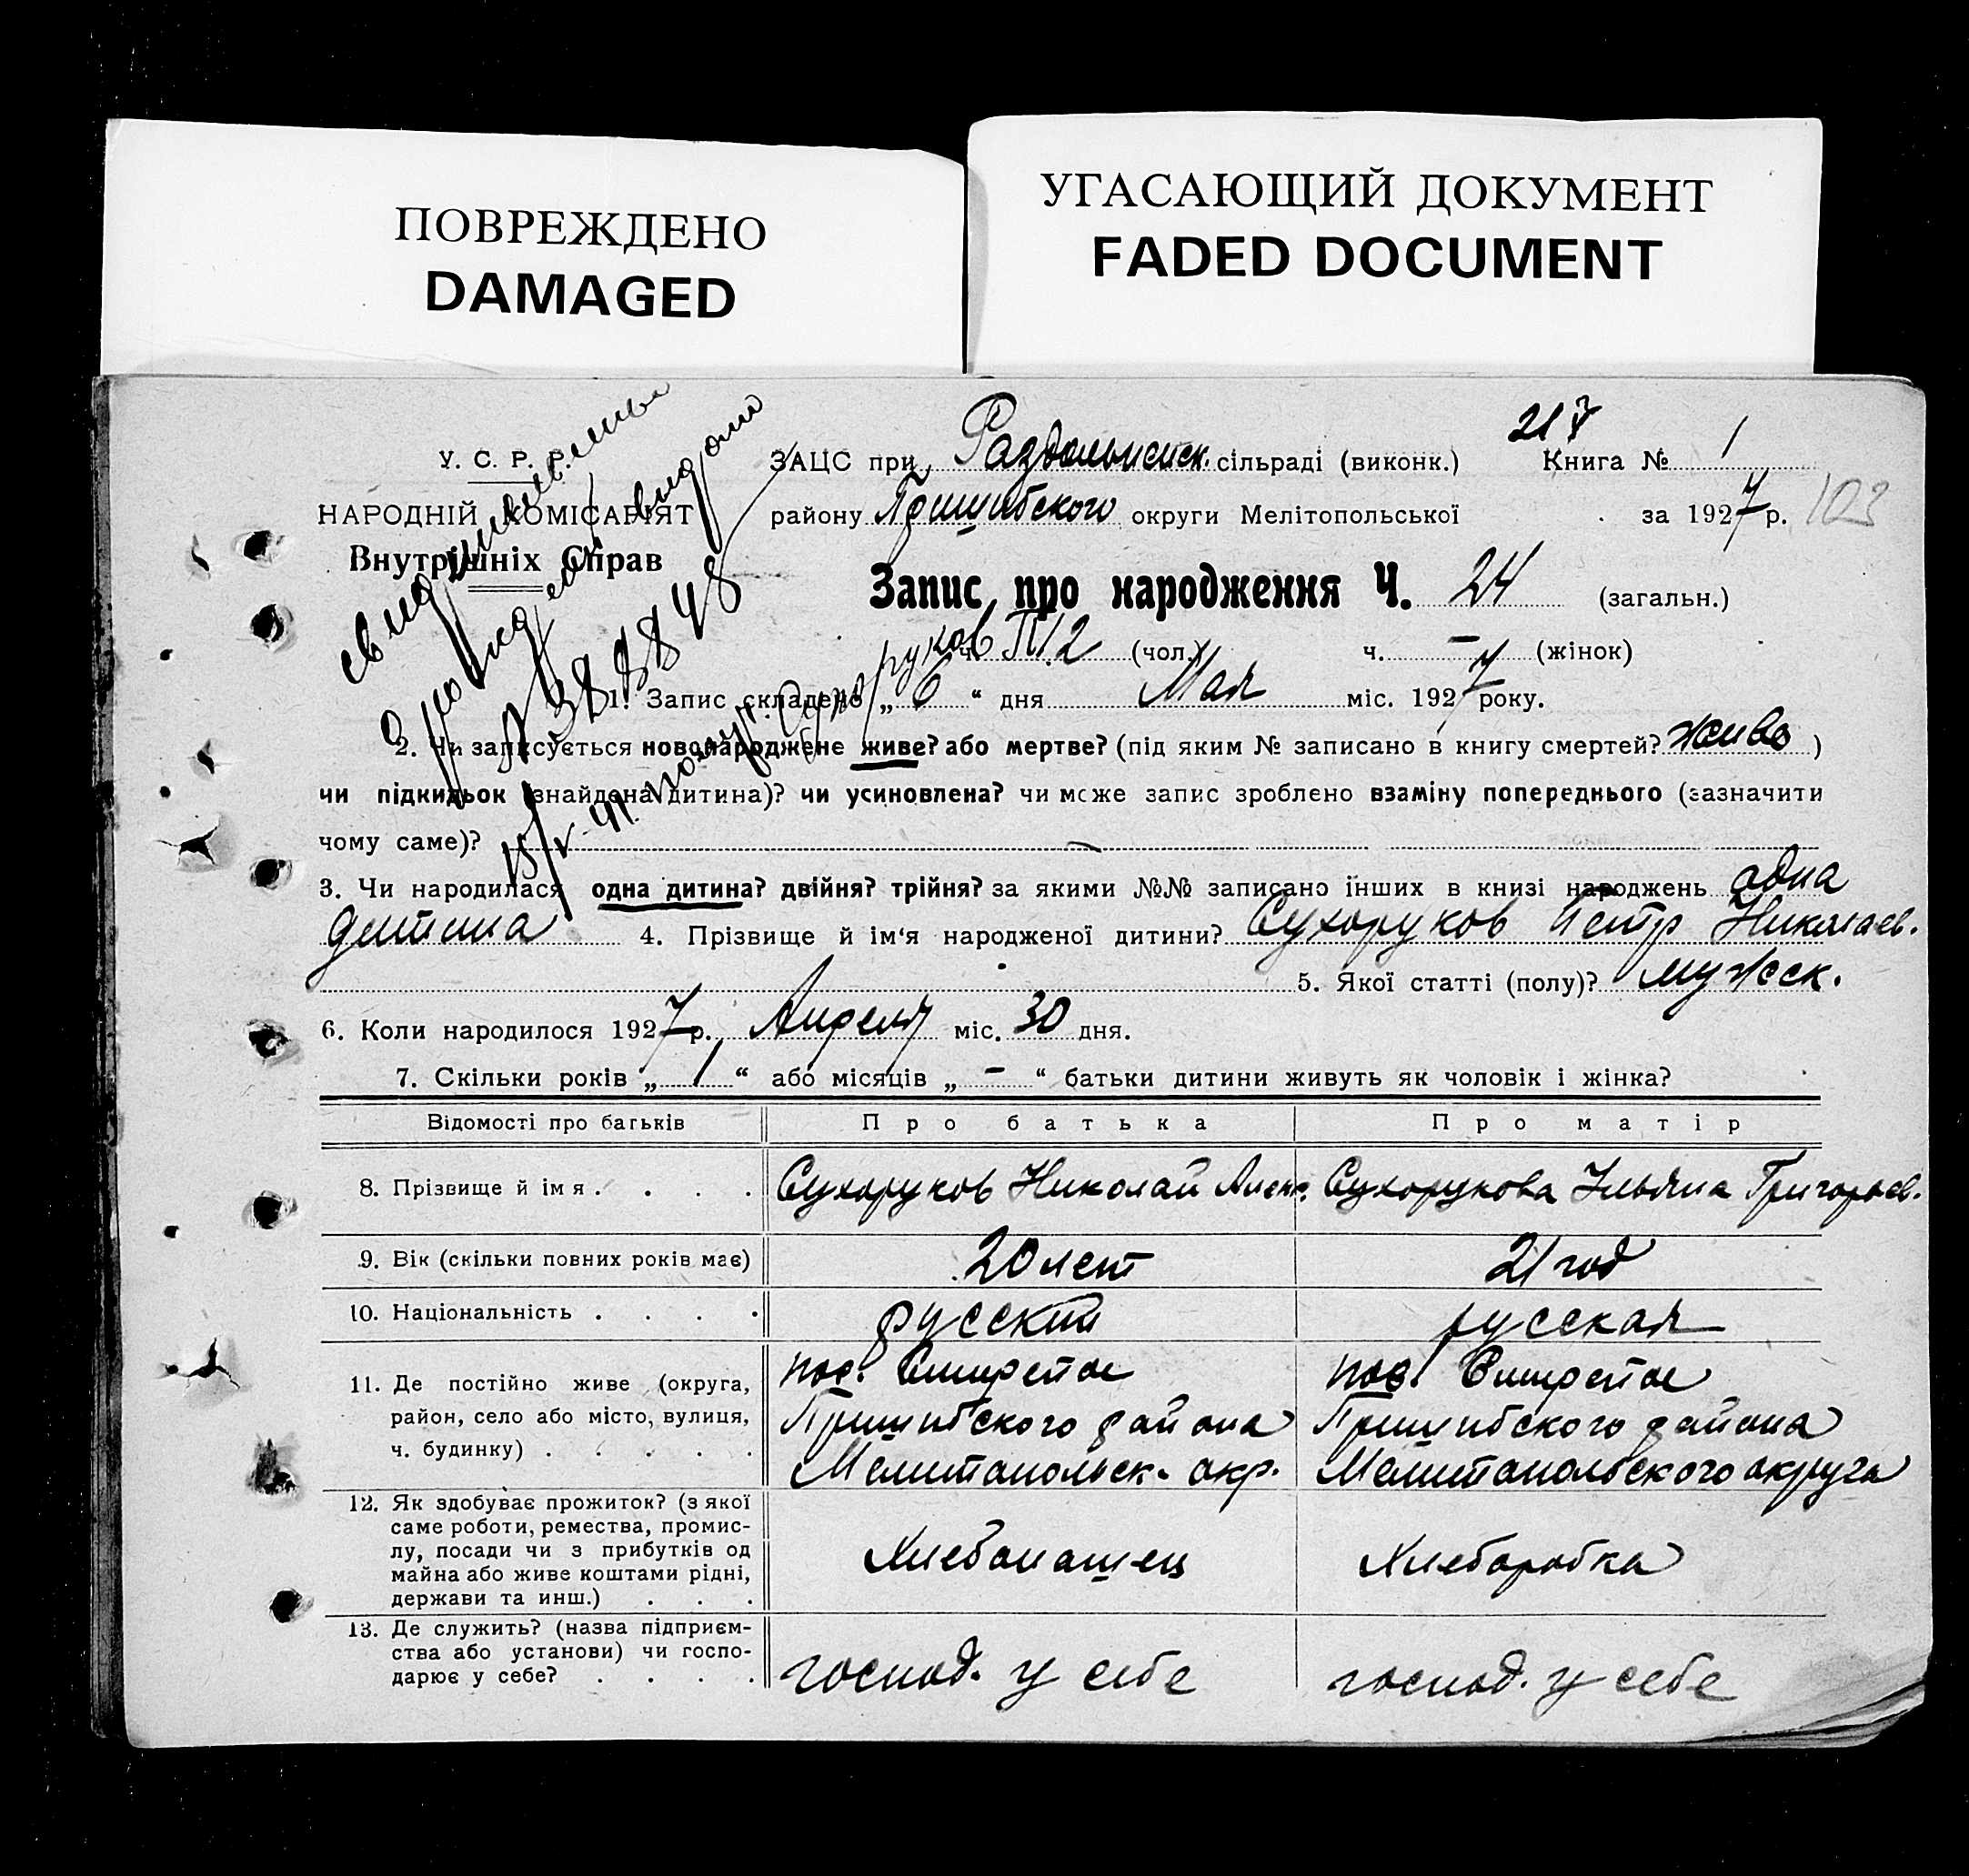 ПОВРЕЖДЕНО
DAMAGED
УГАСАЮЩИЙ ДОКУМЕНТ
FADED DOCUMENT
217
У. С. Р. Р.
НАРОДНІЙ КОМІСАРІЯТ
Внутрішніх Справ
ЗАЦС при Раздольненск. сільраді (виконк.) Книга № 1
району Пришибского округи Мелітопольської за 1927 р. 103
Запис про народження Ч. 24 (загальн.)
ч. 12 (чол.) ч. – (жінок)
1. Запис складено „ 6 “ дня Мая міс. 1927 року.
2. Чи записується новонароджене живе? або мертве? (під яким № записано в книгу смертей? живо )
чи підкидьок (знайдена дитина)? чи усиновлена? чи може запис зроблено взаміну попереднього (зазначити
чому саме)? —
3. Чи народилася одна дитина? двійня? трійня? за якими №№ записано інших в книзі народжень одна
дитина 4. Прізвище й ім‘я народженої дитини? Сухоруков Петр Николаев.
5. Якої статті (полу)? мужск.
6. Коли народилося 1927 р. Апреля міс. 30 дня.
7. Скільки років „ 1 “ або місяців „ – “ батьки дитини живуть як чоловік і жінка?
Відомості про батьків Про батька Про матір
8. Прізвище й імя . . . . Сухоруков Николай Алекс. Сухорукова Ульяна Григорьев.
9. Вік (скільки повних років має) 20 лет 21 год
10. Національність . . . . русский русская
11. Де постійно живе (округа, район, село або місто, вулиця, ч. будинку) . . . . .
пос. Пришибского района Мелитопольск. окр.
пос. Пришибского района Мелитопольского округа
12. Як здобуває прожиток? (з якої
саме роботи, ремества, промис-
лу, посади чи з прибутків од
майна або живе коштами рідні,
держави та инш.) . . .
Хлебопашец Хлеборобка
13. Де служить? (назва підприєм-
ства або установи) чи госпо-
дарює у себе? . . . .
господ. у себе господ. у себе